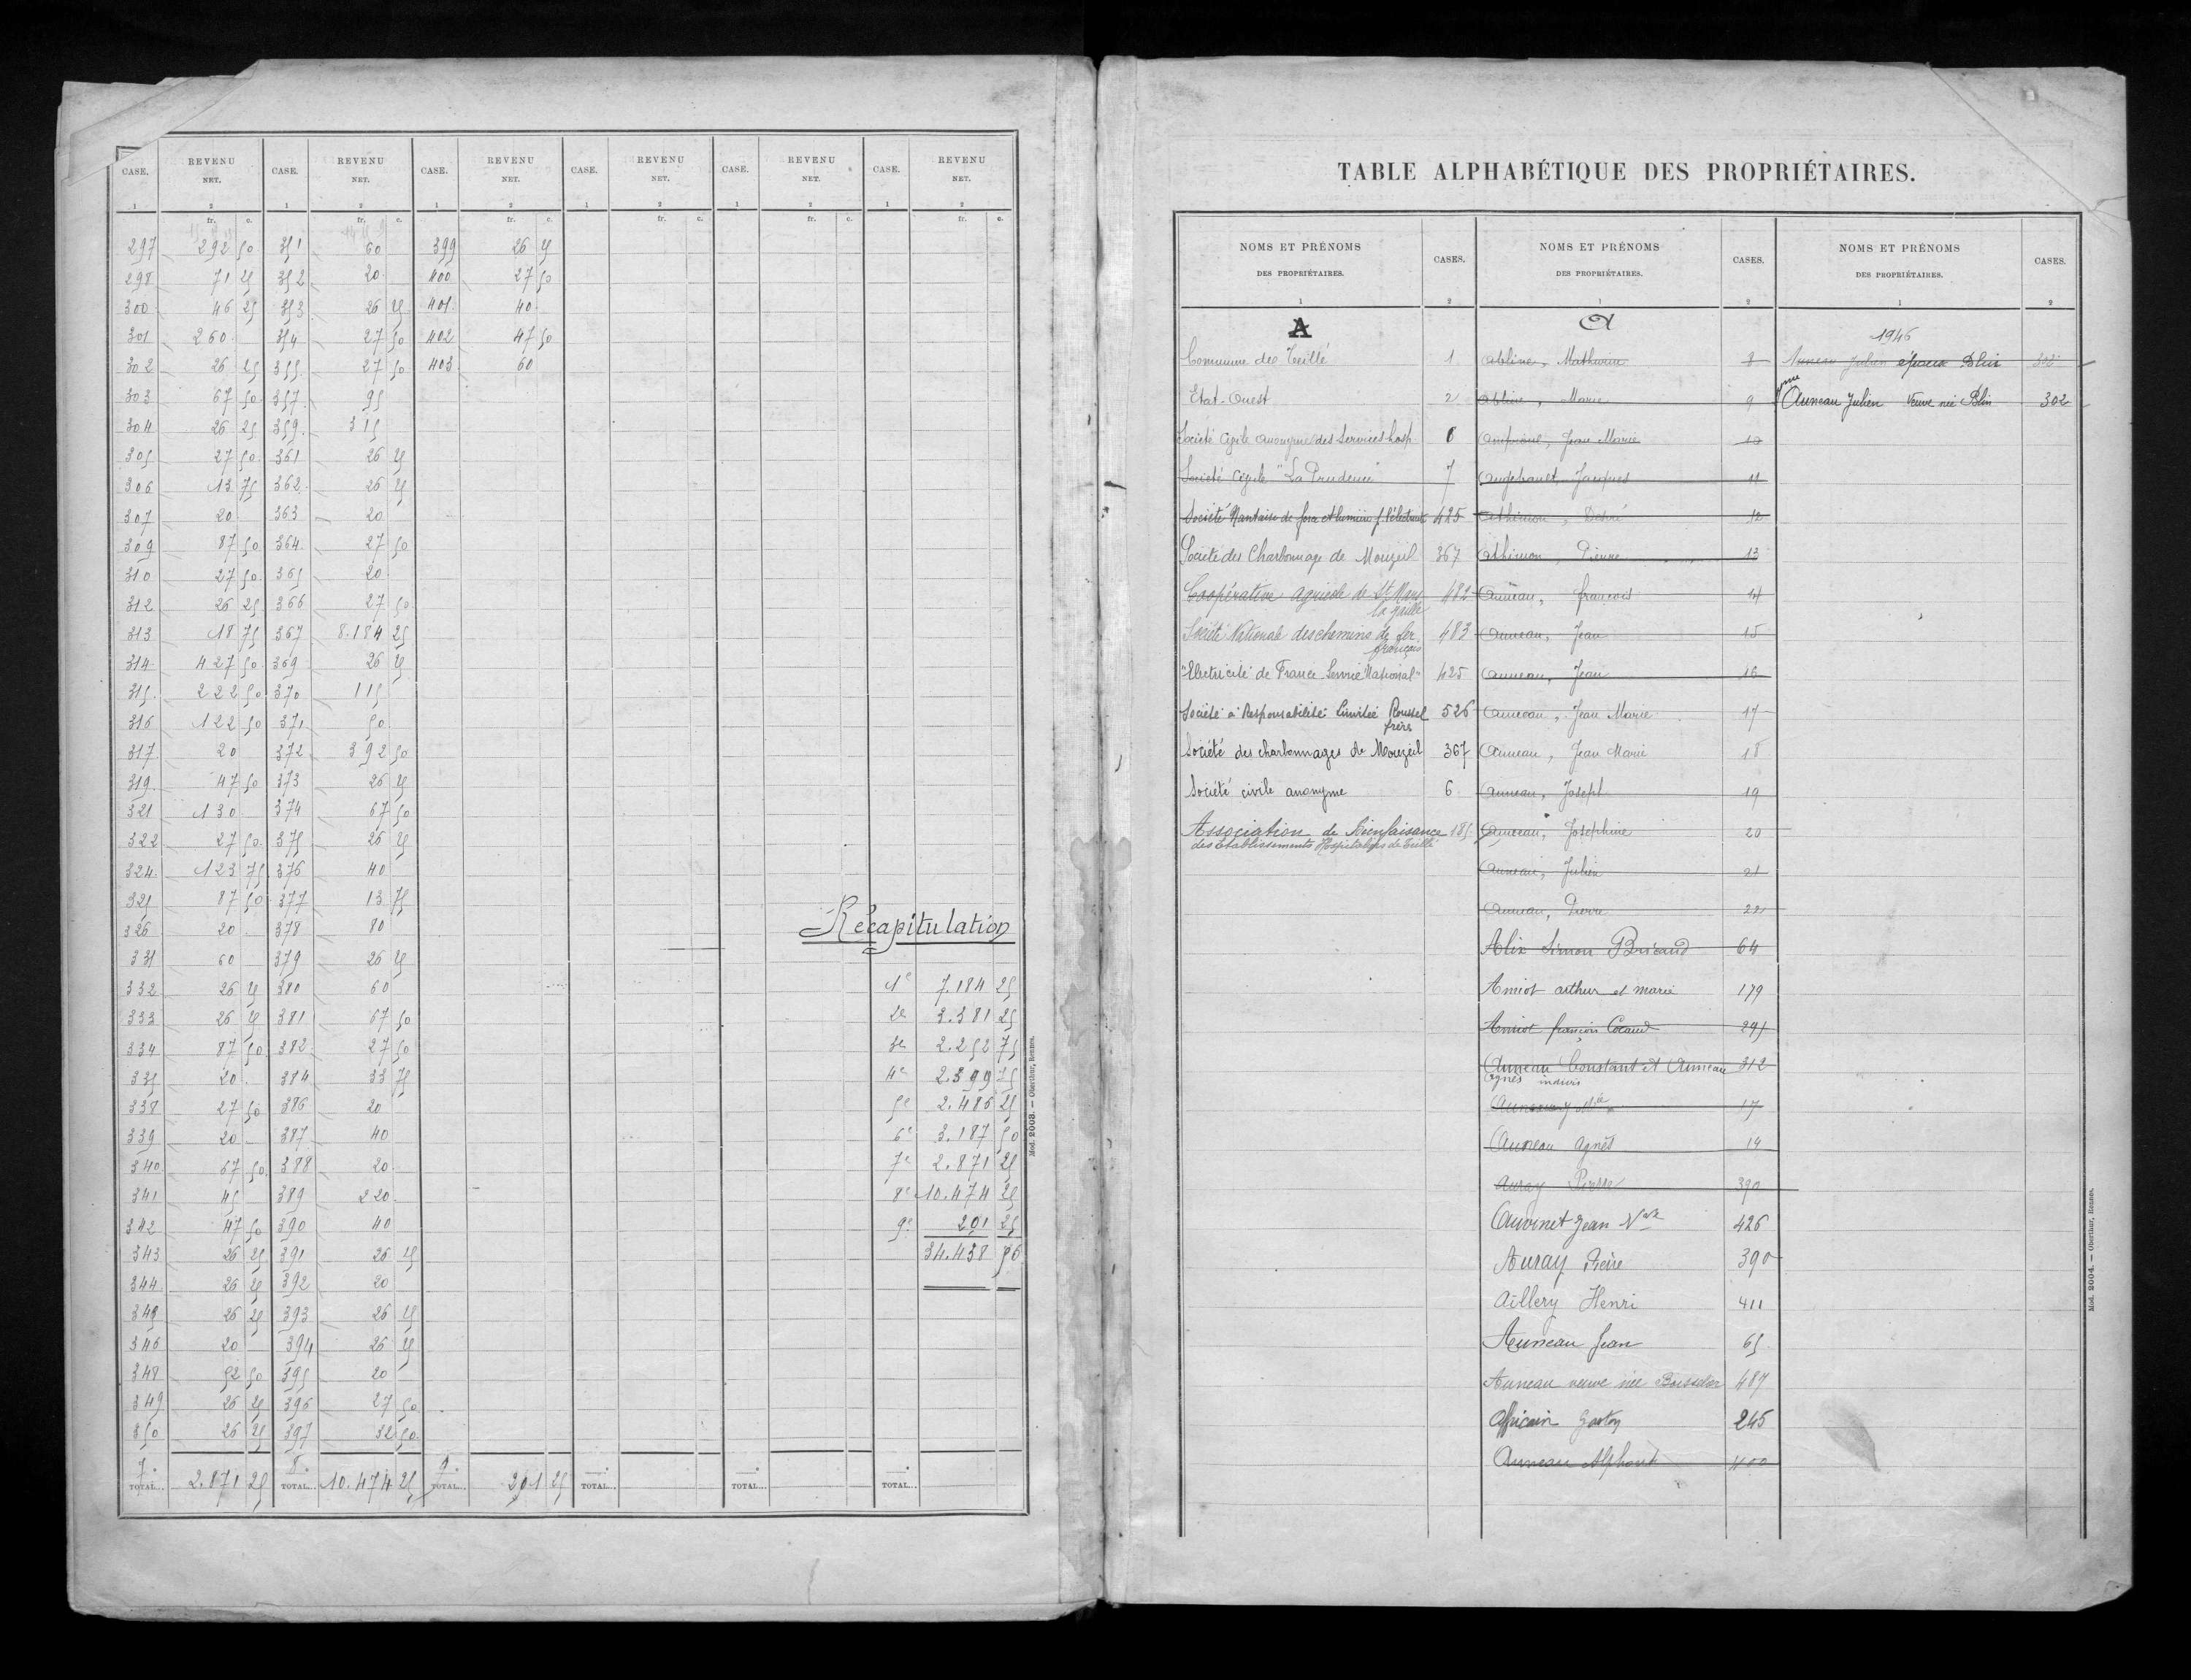 CASE. REVENU NET. CASE. REVENU NET. CASE. REVENU NET. CASE. REVENU NET. CASE. REVENU NET. CASE. REVENU NET.
1 2 1 2 1 2 1 2 1 2 1 2
fr. c. fr. c. fr. c. fr. c. fr. c. fr. c.
297 292 50 351 60 399 26 25
298 71 25 352 20 400 27 50
300 46 25 353 26 25 401 40
301 260 354 27 50 402 47 50
302 26 25 355 27 50 403 60
303 67 50 357 95
304 26 25 359 315
305 27 50 361 26 25
306 13 75 362 26 25
307 20 363 20
309 87 50 364 27 50
310 27 50 365 20
312 26 25 366 27 50
313 18 75 367 8.184 25
314 427 50 369 26 25
315 222 50 370 115
316 122 50 371 50
317 20 372 392 50
319 47 50 373 26 25
321 130 374 67 50
322 27 50 375 26 25
324 123 75 376 40
325 87 50 377 13 75
326 20 378 80
331 60 379 26 25
332 26 25 380 60
333 26 25 381 67 50
334 87 50 382 27 50
335 20 384 33 75
338 27 50 386 20
339 20 387 40
340 67 50 388 20
341 45 389 220
342 47 50 390 40
343 26 25 391 26 25
344 26 25 392 20
345 26 25 393 26 25
346 20 394 26 25
348 52 50 395 20
349 26 25 396 27 50
350 26 25 397 32 50
7e TOTAL... 2.871 25 8e TOTAL... 10.474 25 9e TOTAL... 201 25 TOTAL... TOTAL... TOTAL...
Récapitulation
1e 7.184 25
2e 3.381 25
3e 2.252 75
4e 2.399 75
5e 2.486 25
6e 3.187 50
7e 2.871 25
8e 10.474 25
9e 201 25
34.438 50
Mod. 2003. — Oberthur, Rennes.
TABLE ALPHABÉTIQUE DES PROPRIÉTAIRES.
NOMS ET PRÉNOMS DES PROPRIÉTAIRES. CASES. NOMS ET PRÉNOMS DES PROPRIÉTAIRES. CASES. NOMS ET PRÉNOMS DES PROPRIÉTAIRES. CASES.
1 2 1 2 1 2
A
Commune de Teillé 1
Etat-Ouest 2
Société Civile anonyme des Services hosp. 6
Société Civile "La Prudence" 7
Société Nantaise de force et lumière p. l'électricité 425
Société des Charbonnage de Mouzeil 367
Coopérative agricole de St Mars la Jaille 482
Société Nationale des chemins de fer français 483
"Electricité de France Service National" 425
Société à Responsabilité Limitée Roussel frères 526
Société des charbonnages de Mouzeil 367
Société civile anonyme 6
Association de Bienfaisance 185
des Etablissements Hospitaliers de Teillé
A
Abline, Mathurin 8
Abline, Marie 9
Jean Marie 10
Jacques 11
Athimon, Désiré 12
Athimon, Pierre 13
Auneau, françois 14
Auneau, Jean 15
Auneau, Jean 16
Auneau, Jean Marie 17
Auneau, Jean Marie 18
Auneau, Joseph 19
Auneau, Joséphine 20
Auneau, Julien 21
Auneau, Pierre 22
Alix Simon Bricaud 64
Amiot arthur et marie 179
Amiot françois Cocaud 295
Auneau Constant et Auneau 312
Agnès indivis
17
Auneau Agnès 14
Auray Pierre 390
Auvinet Jean Vve 426
Auray Pierre 390
Aillery Henri 411
Auneau Jean 65
Auneau veuve née Boisselier 487
Africain Gaston 245
Auneau Alphonse 400
1946
Auneau Julien époux Blin 302
Auneau Julien Veuve née Blin 302
Mod. 2004. — Oberthur, Rennes.